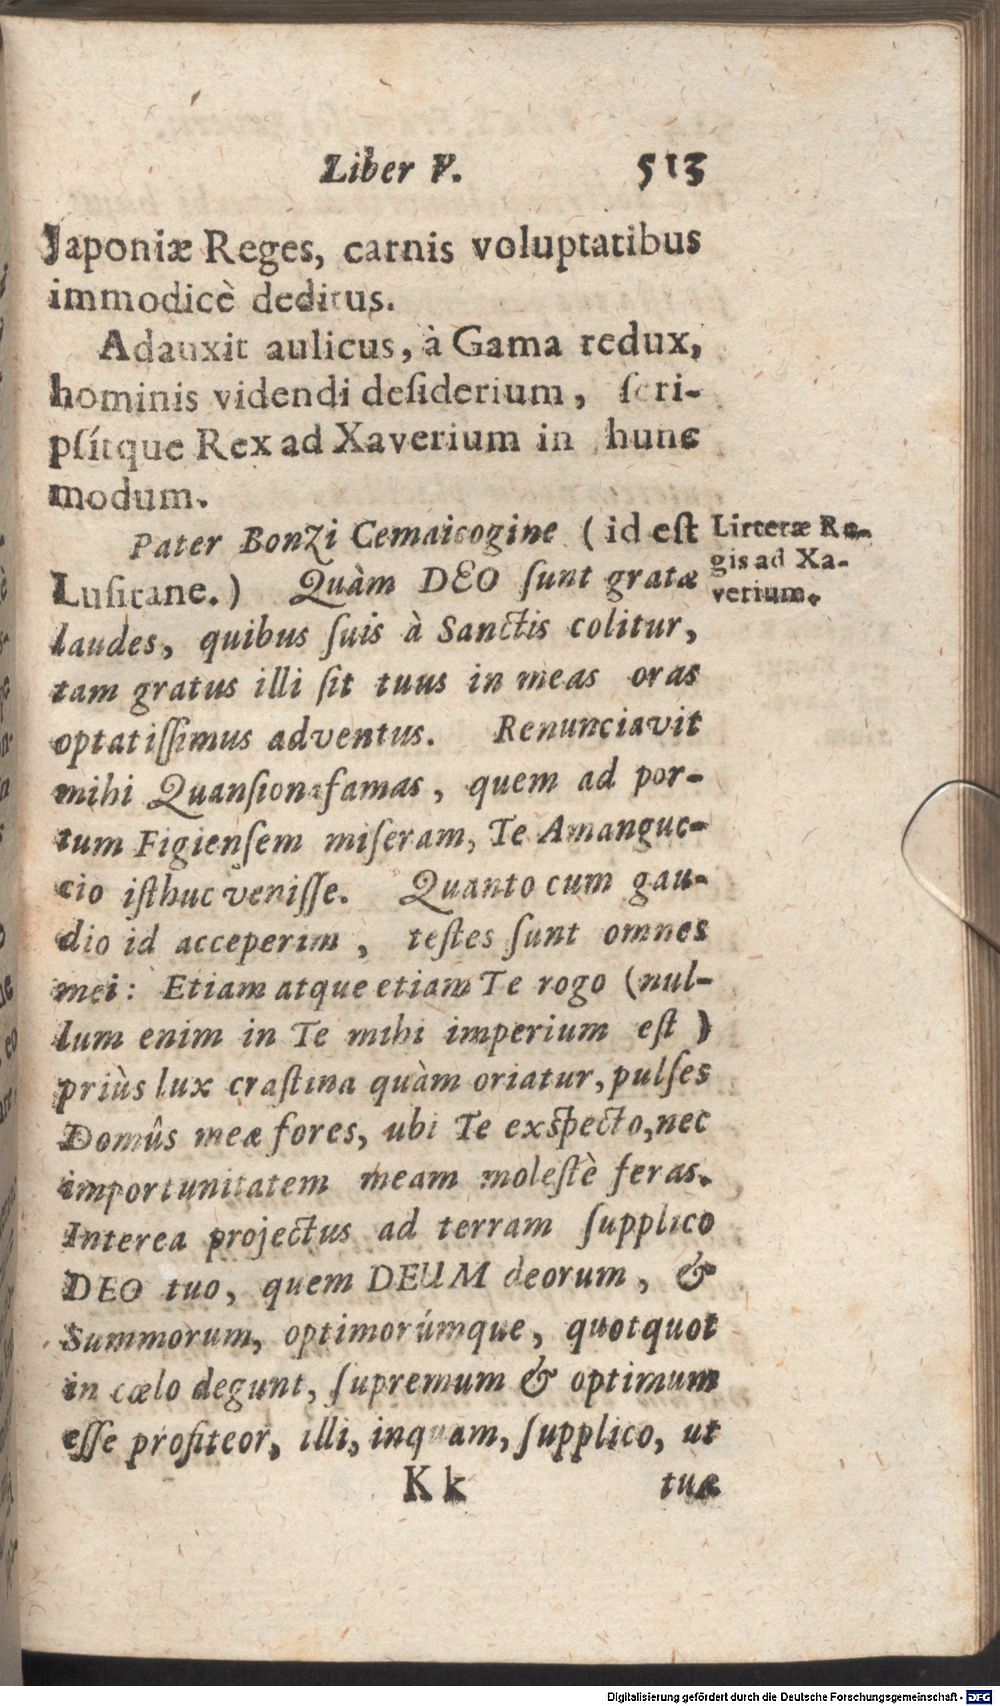 Liber V. 513
Japoniæ Reges, carnis voluptatibus
immodicè deditus.
Adauxit aulicus, à Gama redux,
hominis videndi deſiderium, ſcri-
pſítque Rex ad Xaverium in hunc
modum.
Pater Bonzi Cemaicogine (id eſt
Luſitane.) Quàm DEO ſunt gratæ
laudes, quibus ſuis à Sanctis colitur,
tam gratus illi ſit tuus in meas oras
optatiſſimus adventus. Renunciavit
mihi Quanſionafamas, quem ad por-
tum Figienſem miſeram, Te Amanguc-
cio iſthuc veniſſe. Quanto cum gau-
dio id acceperim, teſtes ſunt omnes
mei: Etiam atque etiam Te rogo (nul-
lum enim in Te mihi imperium eſt)
priùs lux craſtina quàm oriatur, pulſes
Domûs meæ fores, ubi Te exſpecto, nec
importunitatem meam moleſtè feras.
Interea projectus ad terram ſupplico
DEO tuo, quem DEUM deorum, &
Summorum, optimorúmque, quotquot
in cœlo degunt, ſupremum & optimum
eſſe profiteor, illi, inquam, ſupplico, ut
Kk tuæ
Litteræ Re-
gis ad Xa-
verium.
Digitalisierung gefördert durch die Deutsche Forschungsgemeinschaft - DFG